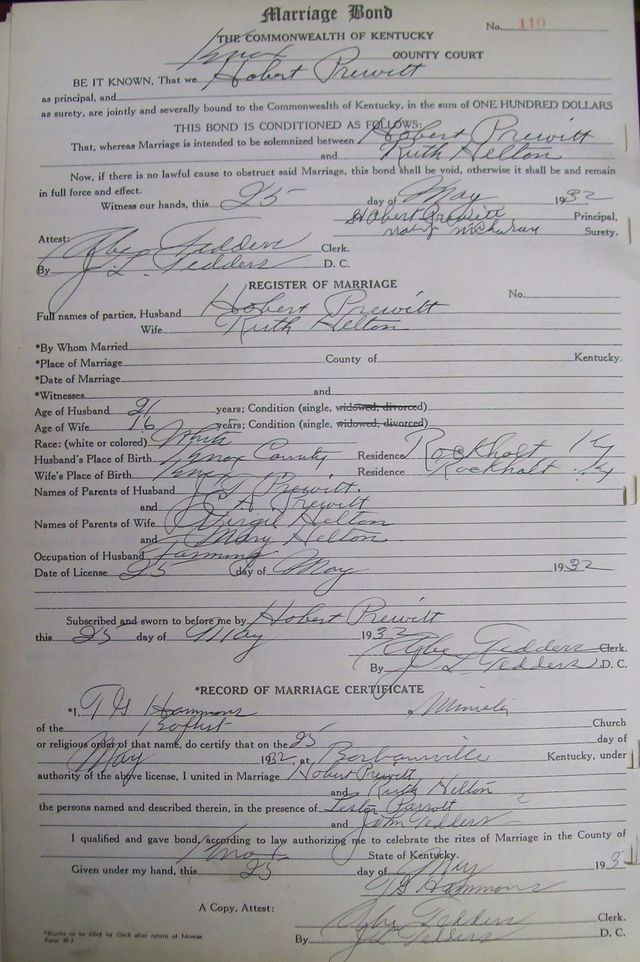 Marriage Bond
No. 110
THE COMMONWEALTH OF KENTUCKY
Knox COUNTY COURT
BE IT KNOWN, That we Hobert Prewitt
as principal, and
as surety, are jointly and severally bound to the Commonwealth of Kentucky, in the sum of ONE HUNDRED DOLLARS
THIS BOND IS CONDITIONED AS FOLLOWS:
That, whereas Marriage is intended to be solemnized between Hobert Prewitt
and Ruth Helton
Now, if there is no lawful cause to obstruct said Marriage, this bond shall be void, otherwise it shall be and remain
in full force and effect.
Witness our hands, this 25 day of May 1932
Hobert Prewitt Principal,
Surety.
Attest: Abe Tedders Clerk.
By J L Tedders D. C.
REGISTER OF MARRIAGE
No.
Full names of parties, Husband Hobert Prewitt
Wife Ruth Helton
*By Whom Married
*Place of Marriage County of Kentucky.
*Date of Marriage
*Witnesses and
Age of Husband 21 years; Condition (single, widowed, divorced)
Age of Wife 16 years; Condition (single, widowed, divorced)
Race: (white or colored) White
Husband's Place of Birth Knox County Residence Rockholt Ky
Wife's Place of Birth Knox Residence Rockholt Ky
Names of Parents of Husband Prewitt
and A Prewitt
Names of Parents of Wife Virgil Helton
and Mary Helton
Occupation of Husband Farming
Date of License 25 day of May 1932
Subscribed and sworn to before me by Hobert Prewitt
this 25 day of May 1932
Abe Tedders Clerk.
By J L Tedders D. C.
*RECORD OF MARRIAGE CERTIFICATE
*I, T G Hammons Minister
of the Baptist Church
or religious order of that name, do certify that on the 25 day of
May 1932, at Barbourville Kentucky, under
authority of the above license, I united in Marriage Hobert Prewitt
and Ruth Helton
the persons named and described therein, in the presence of Lester Parrott
and John Tedders
I qualified and gave bond, according to law authorizing me to celebrate the rites of Marriage in the County of
Knox State of Kentucky.
Given under my hand, this 25 day of May 193
T G Hammons
A Copy, Attest: Abe Tedders Clerk.
By J L Tedders D. C.
*Blanks to be filled by Clerk after return of License